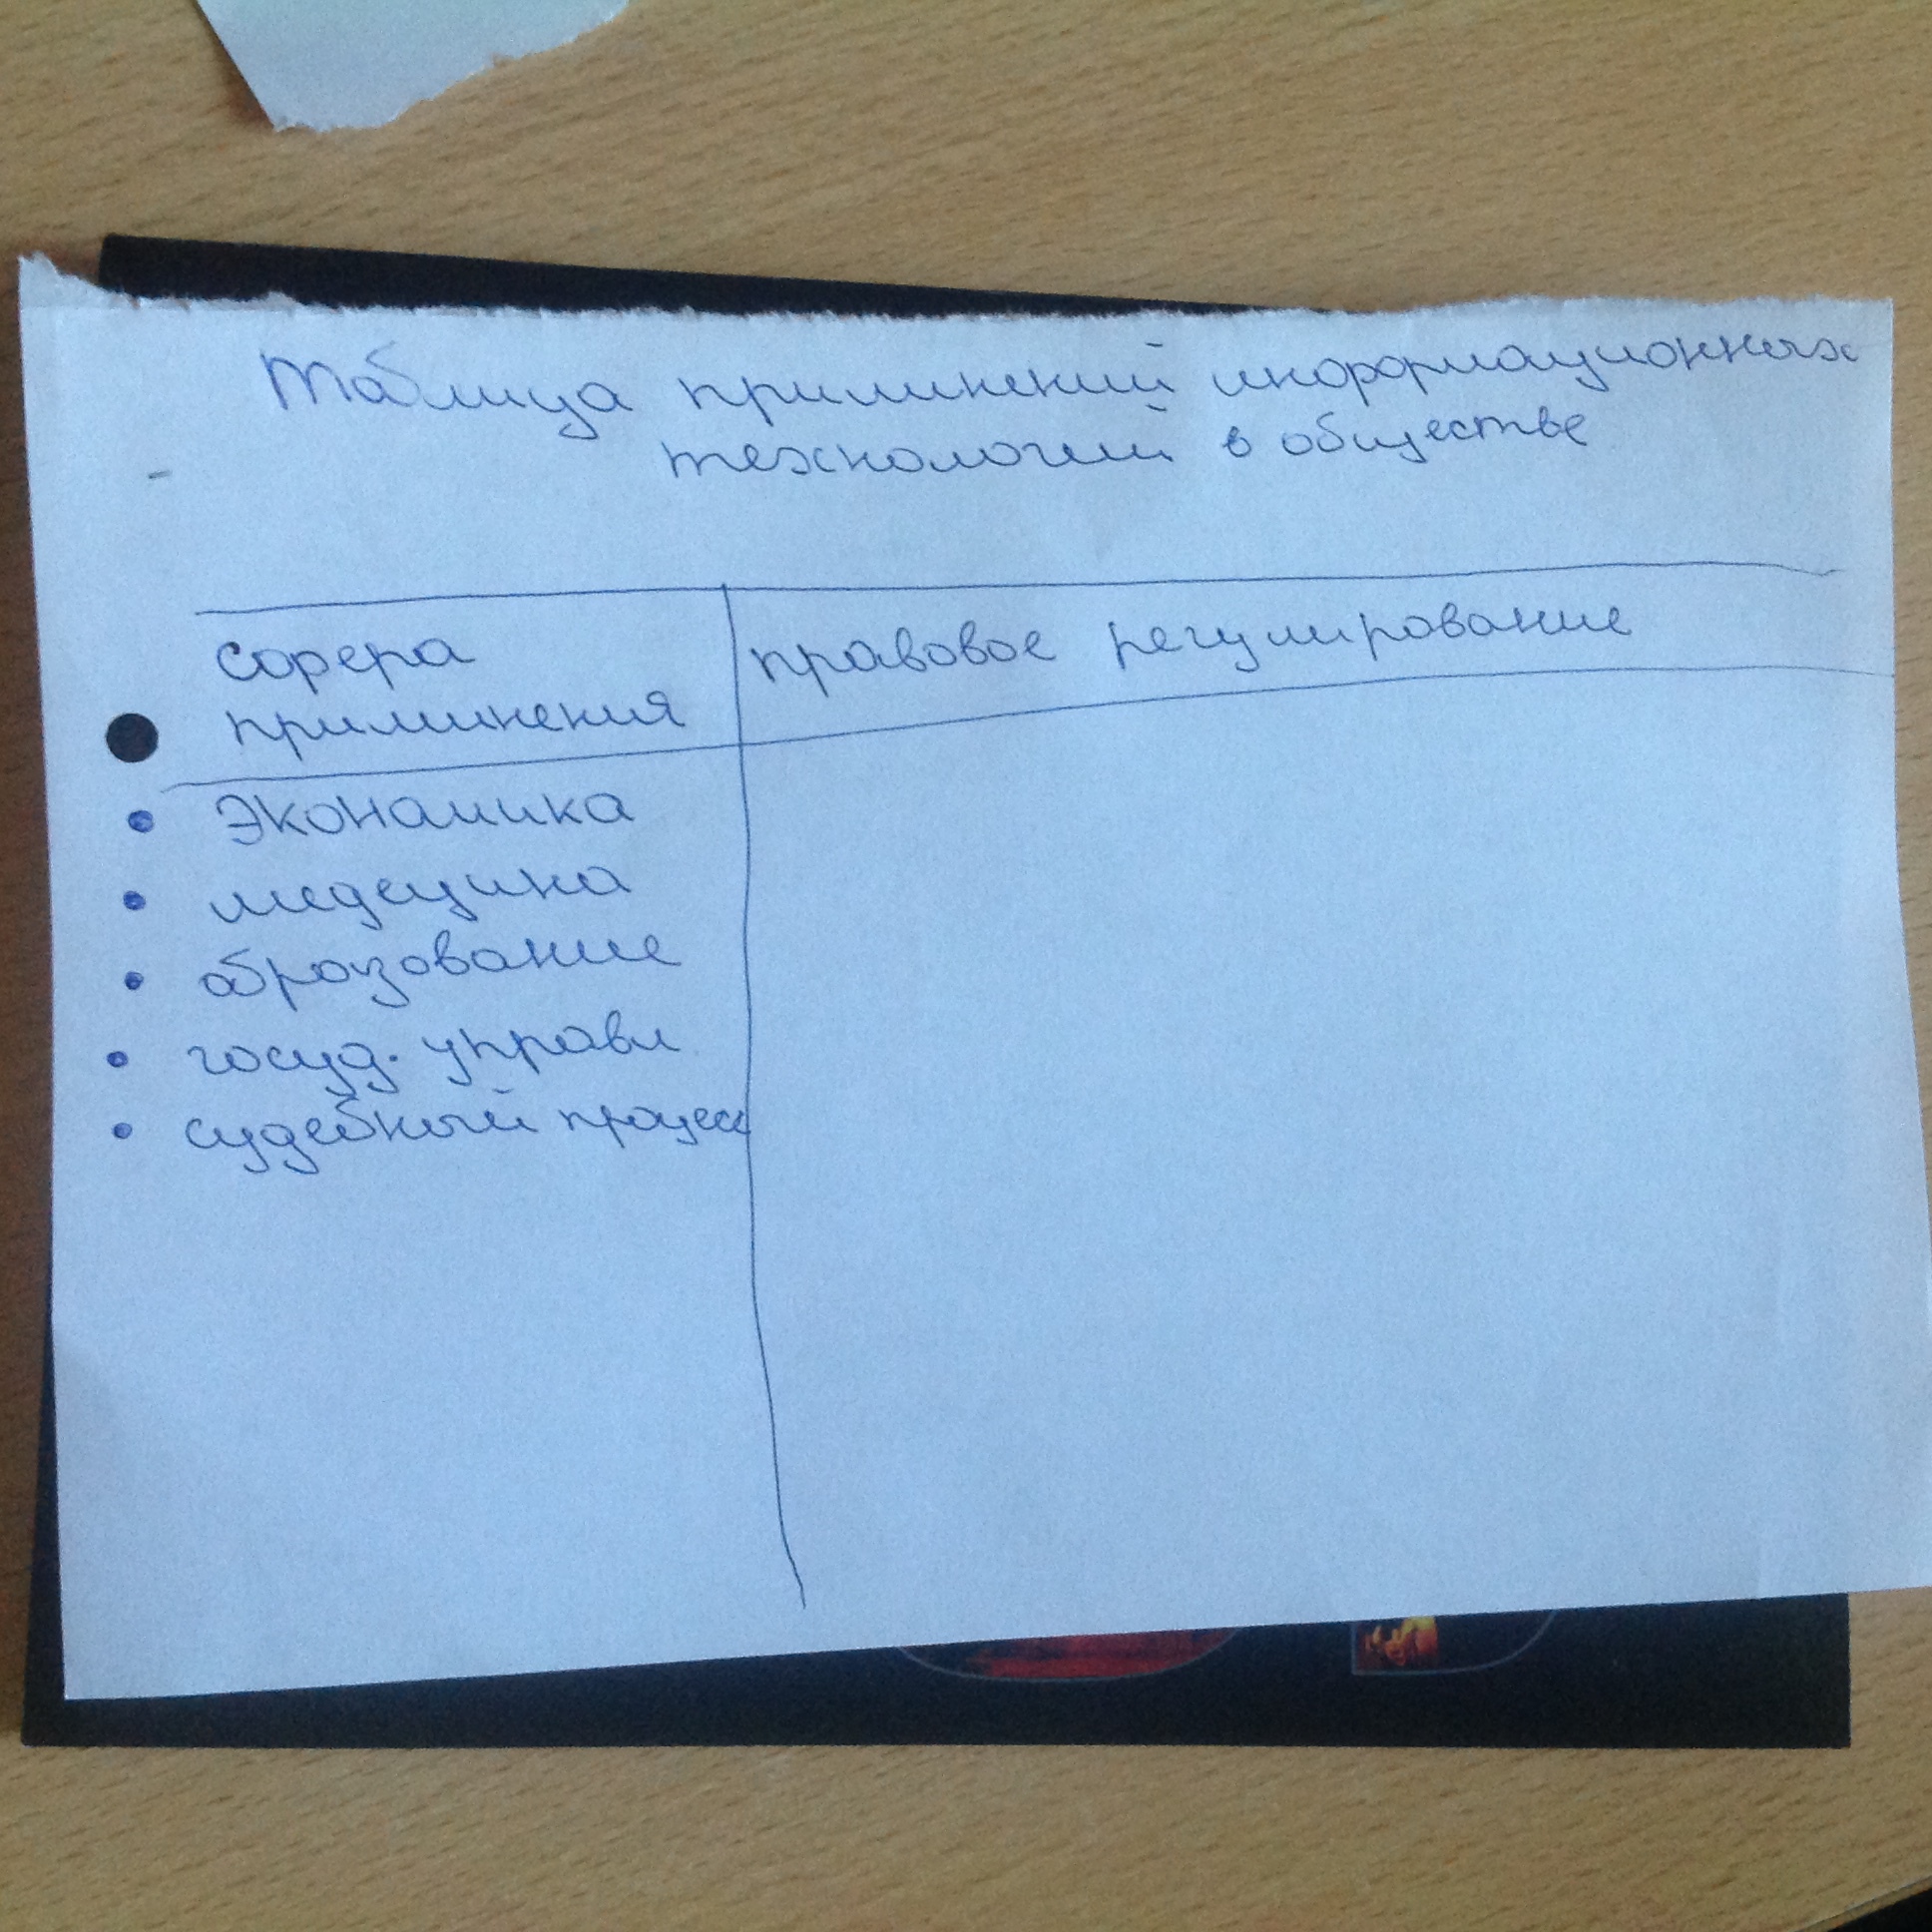 Таблица приминений информационных
технологий в обществе
Сфера правовое регулирование
приминения
• Экономика
• медецина
• образование
• госуд. управл
• судебный процесс